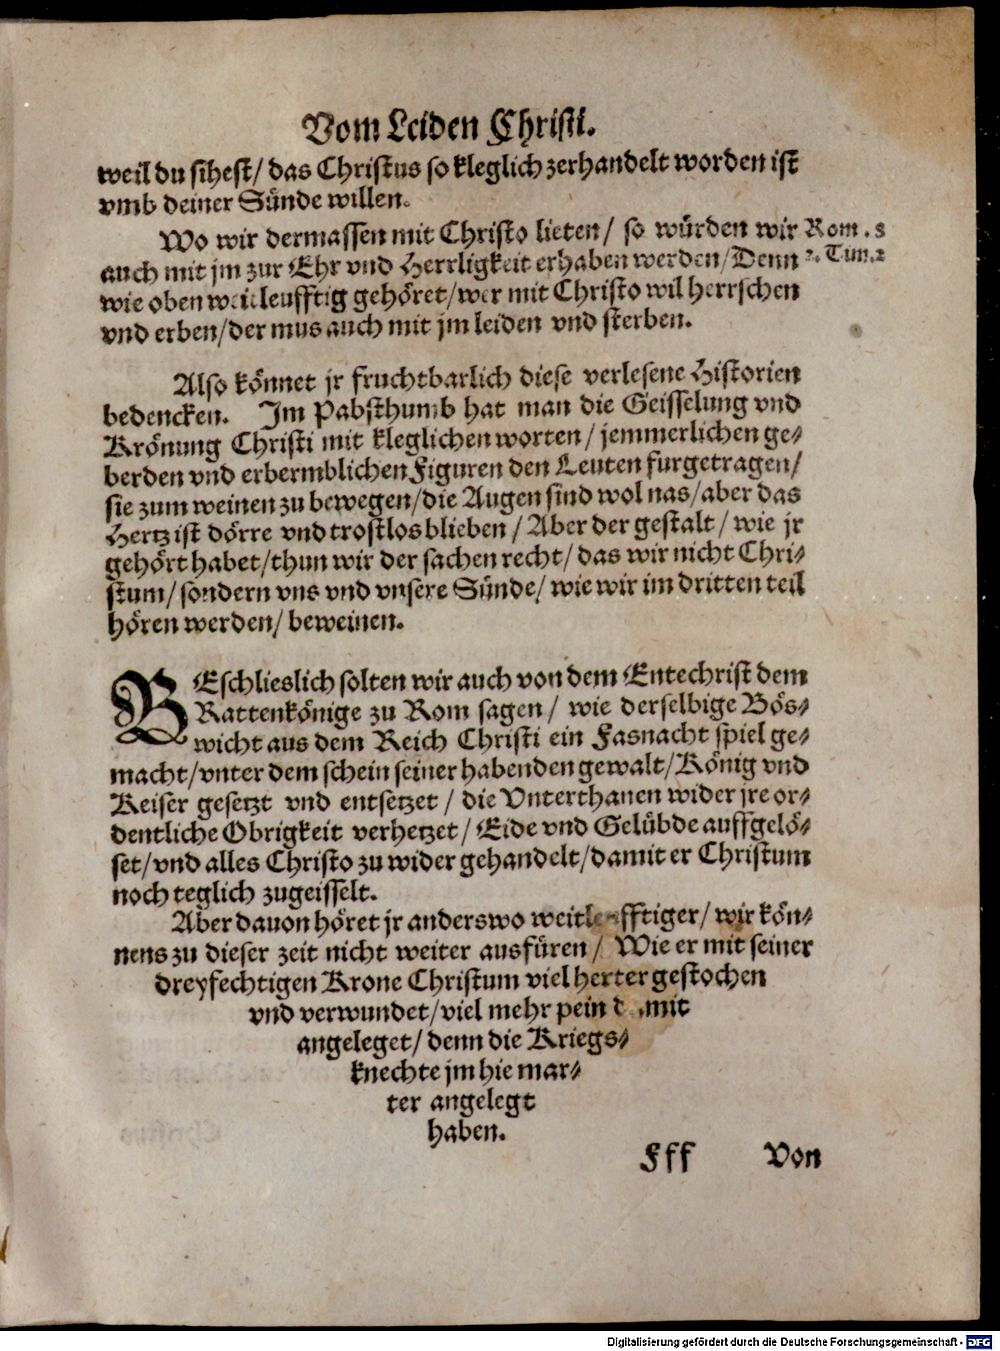 Vom Leiden Christi.
weil du sihest/ das Christus so kleglich zerhandelt worden ist
vmb deiner Sünde willen.
Wo wir dermassen mit Christo lieten/ so würden wir Rom. 8
auch mit jm zur Ehr vnd Herrligkeit erhaben werden/Denn 2. Tim. 2
wie oben weitleufftig gehöret/wer mit Christo wil herrschen
vnd erben/der mus auch mit jm leiden vnd sterben.
Also könnet jr fruchtbarlich diese verlesene Historien
bedencken. Im Pabsthumb hat man die Geisselung vnd
Krönung Christi mit kleglichen worten/jemmerlichen ge-
berden vnd erbermblichen Figuren den Leuten furgetragen/
sie zum weinen zu bewegen/die Augen sind wol nas/aber das
Hertz ist dörre vnd trostlos blieben/ Aber der gestalt/ wie jr
gehört habet/thun wir der sachen recht/ das wir nicht Chri-
stum/sondern vns vnd vnsere Sünde/ wie wir im dritten teil
hören werden/ beweinen.
BEschlieslich solten wir auch von dem Entechrist dem
Rattenkönige zu Rom sagen/ wie derselbige Bös-
wicht aus dem Reich Christi ein Fasnacht spiel ge-
macht/vnter dem schein seiner habenden gewalt/König vnd
Keiser gesetzt vnd entsetzet/ die Vnterthanen wider jre or-
dentliche Obrigkeit verhetzet/ Eide vnd Gelübde auffgelö-
set/vnd alles Christo zu wider gehandelt/damit er Christum
noch teglich zugeisselt.
Aber dauon höret jr anderswo weitleufftiger/ wir kön-
nens zu dieser zeit nicht weiter ausfüren/ Wie er mit seiner
dreyfechtigen Krone Christum viel herter gestochen
vnd verwundet/viel mehr pein damit
angeleget/ denn die Kriegs-
knechte jm hie mar-
ter angelegt
haben.
Fff Von
Digitalisierung gefördert durch die Deutsche Forschungsgemeinschaft - DFG